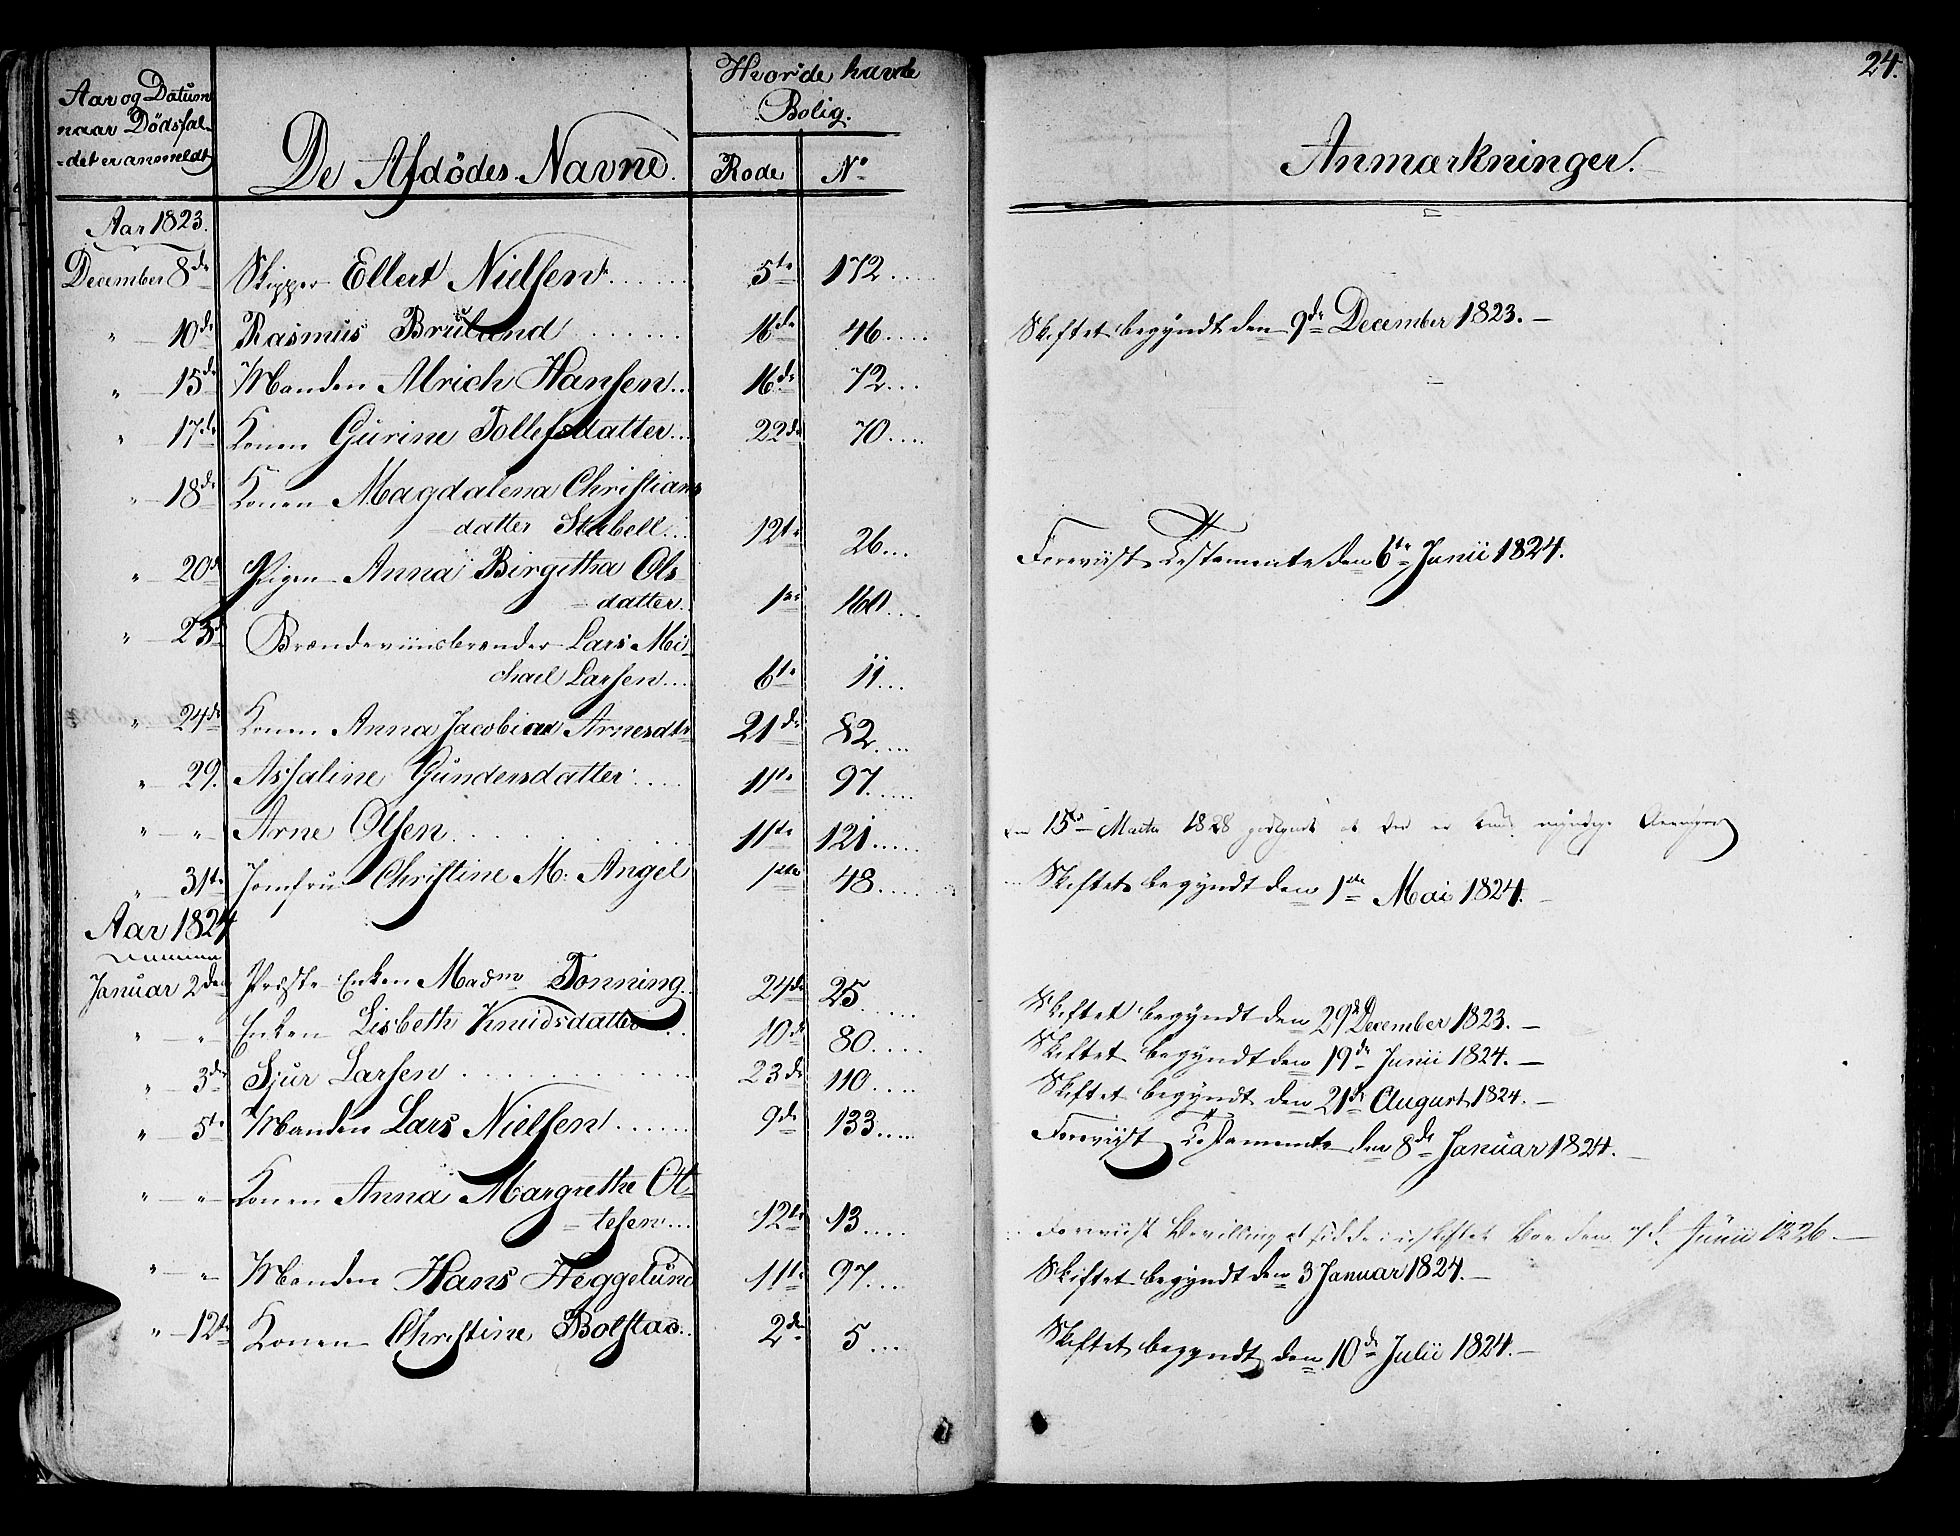 Aar og Datum
naar Dödsfal-
-det er anmeldt
De Afdödes Navne.
Hvor de havde
Bolig.
Rode
No
Aar 1823.
December 8de Skipper Ellert Nielsen ...... 5te 172 ....
" — 10de Rasmus Bruland ...... 16de 46 ....
" — 15de Manden Alrich Hansen... 16de 72 ...
" — 17de Konen Gurine Tollefsdatter... 22de 70 ....
" — 18de Konen Magdalena Christians
datter Stabell... 12te 26 ...
" — 20de Pigen Anna Birgitha Ols
= datter. 1ste 160 ...
" — 23de Brændeviinsbrænder Lars Mi-
chael Larsen... 6te 11 ...
" — 24de Konen Anna Jacobina Arnesdtr 21de 82 ....
" 29. Assaline Gundersdatter ..... 11te 97 .....
" — " Arne Olsen ...... 11te 121 .....
" 31te Jomfrue Christine M: Angel 1ste 48 .....
Aar 1824
Januar 2den Præste Enken Madme Tonning. 24de 25 ......
" — " Enken Lisbeth Knudsdatter .. 10de 80 .....
" 3de Sjur Larsen ...... 23de 110 .....
" 5te Manden Lars Nielsen ...... 9de 133 .....
" — " Konen Anna Margrethe Ot-
= tesen ... 12te 13 ....
" — " Manden Hans Heggelund 11te 97 ....
" — 12te Konen Christine Bolstad.. 2den 5 ...
24.
Anmærkninger.
Skiftet begyndt den 9de December 1823. —
Foreviist Testamente den 6te Junii 1824.
den 15de Martz 1828 godtgjort at der er kuns myndige Arvinger
Skiftet begyndt den 1ste Mai 1824. —
Skiftet begyndt den 29de December 1823. —
Skiftet begyndt den 19de Junii 1824. —
Skiftet begyndt den 21de August 1824. —
Foreviist Testamente den 8de Januar 1824. —
Foreviist Bevilling at sidde i uskiftet Boe den 7de Junii 1826 —
Skiftet begyndt den 3 Januar 1824. —
Skiftet begyndt den 10de Julii 1824. —